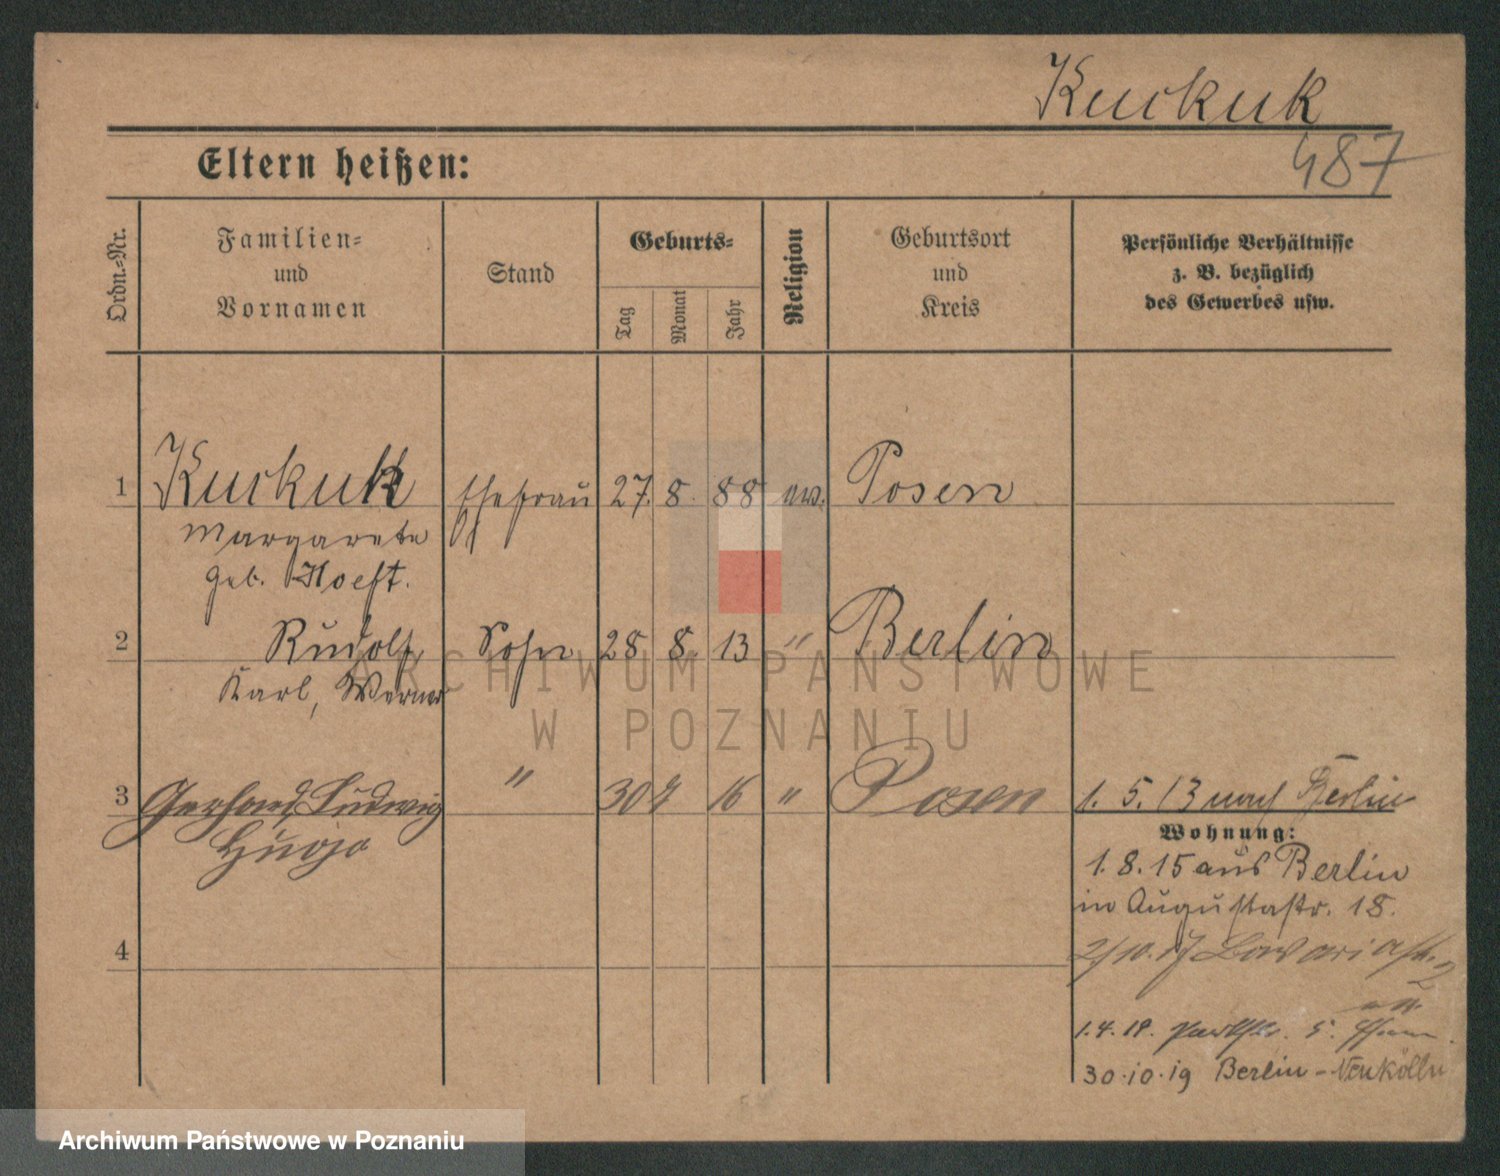 Kuckuk
Eltern heißen:
487
Ordn.-Nr.
Familien-
und
Vornamen
Stand
Geburts-
Tag
Monat
Jahr
Religion
Geburtsort
und
Kreis
Persönliche Verhältnisse
z. B. bezüglich
des Gewerbes usw.
1 Kuckuk Ehefrau 27. 8. 88 ev. Posen
Margarete
geb. Hoeft.
2 Rudolf, Sohn 28 8 13 " Berlin
Karl, Werner
3 Gerhard, Ludwig " 30 16 " Posen 1. 5. 13 nach Berlin
Hugo
Wohnung:
1. 8. 15 aus Berlin
in Augustastr. 18.
4
2/10. 17 Bavariastr. 2
1. 4. 19. Parkstr. 5.
30.10.19 Berlin-Neukölln
ARCHIWUM PAŃSTWOWE
W POZNANIU
Archiwum Państwowe w Poznaniu